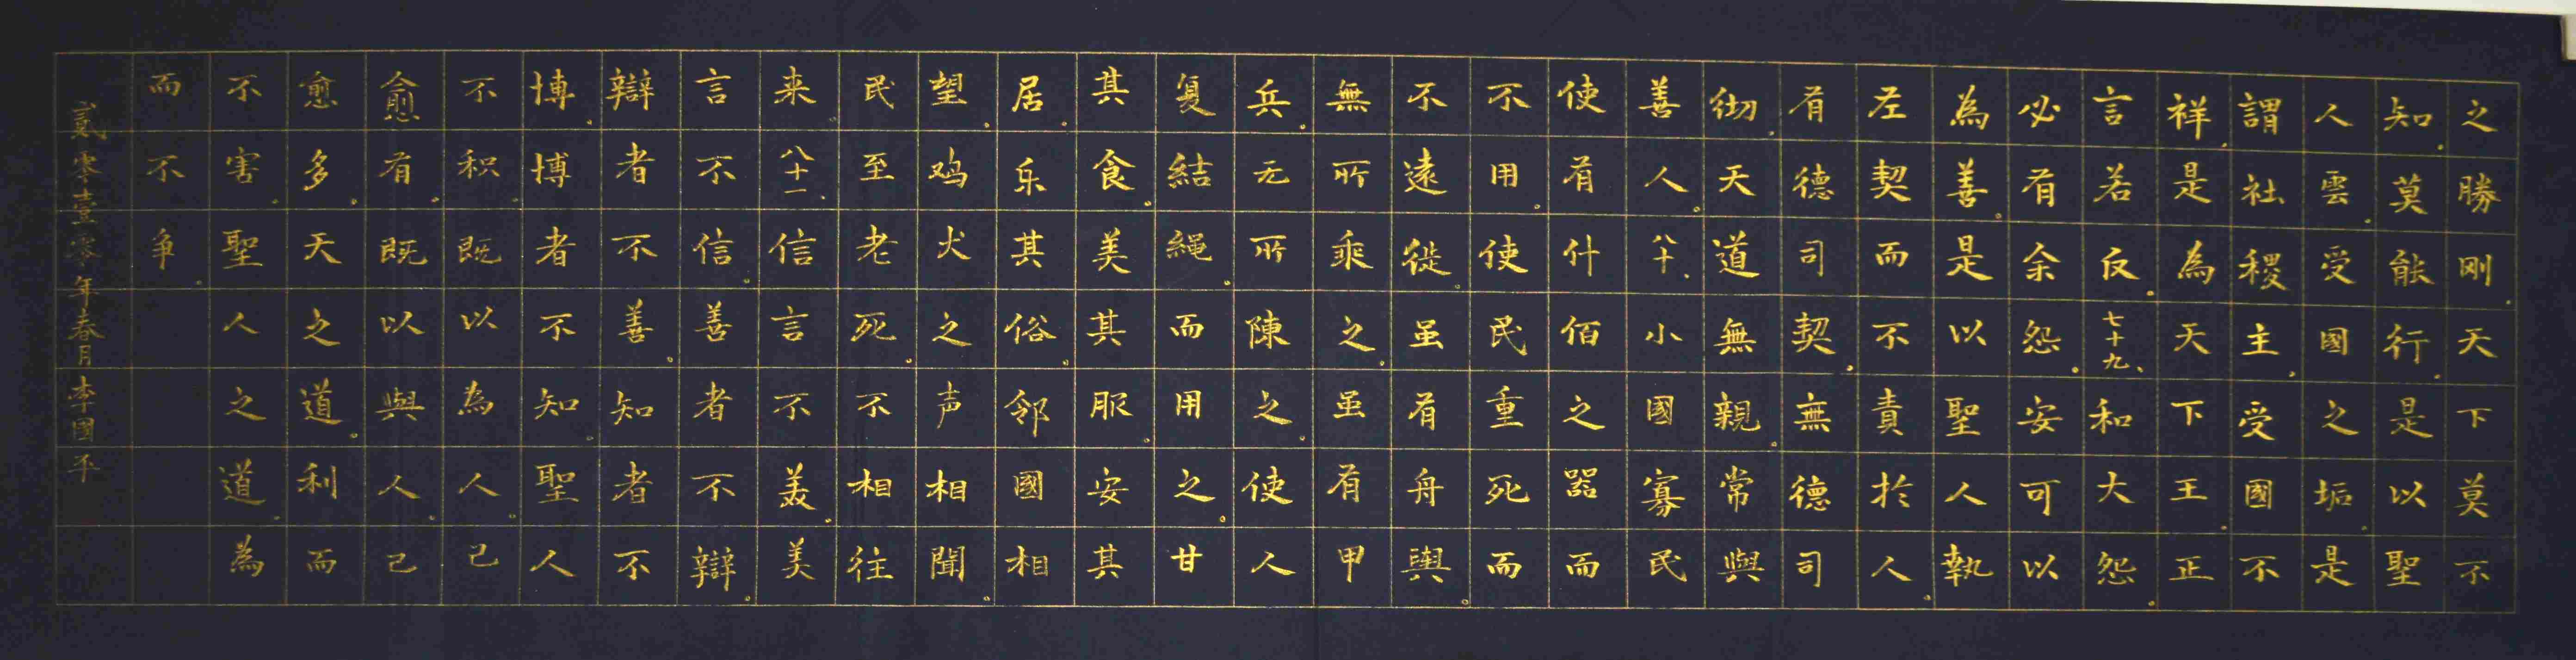 之勝刚。天下莫不
知。莫能行。是以聖
人雲。受國之垢。是
謂社稷主。受國不
祥。是為天下王。正
言若反。七十九、和大怨。
必有余怨。安可以
為善。是以聖人執
左契而不責於人。
有德司契。無德司
彻。天道無親。常與
善人。八十、小國寡民
使有什佰之器而
不用。使民重死而
不遠徙。虽有舟舆。
無所乘之。虽有甲
兵。无所陳之。使人
复結繩。而用之。甘
其食。美其服。安其
居。乐其俗。邻國相
望。鸡犬之声相聞。
民至老死。不相往
来。八十一、信言不美。美
言不信。善者不辯。
辯者不善。知者不
博。博者不知。聖人
不积。既以為人。己
愈有。既以與人。己
愈多。天之道。利而
不害。聖人之道。為
而不争。
貳零壹零年春月李國平